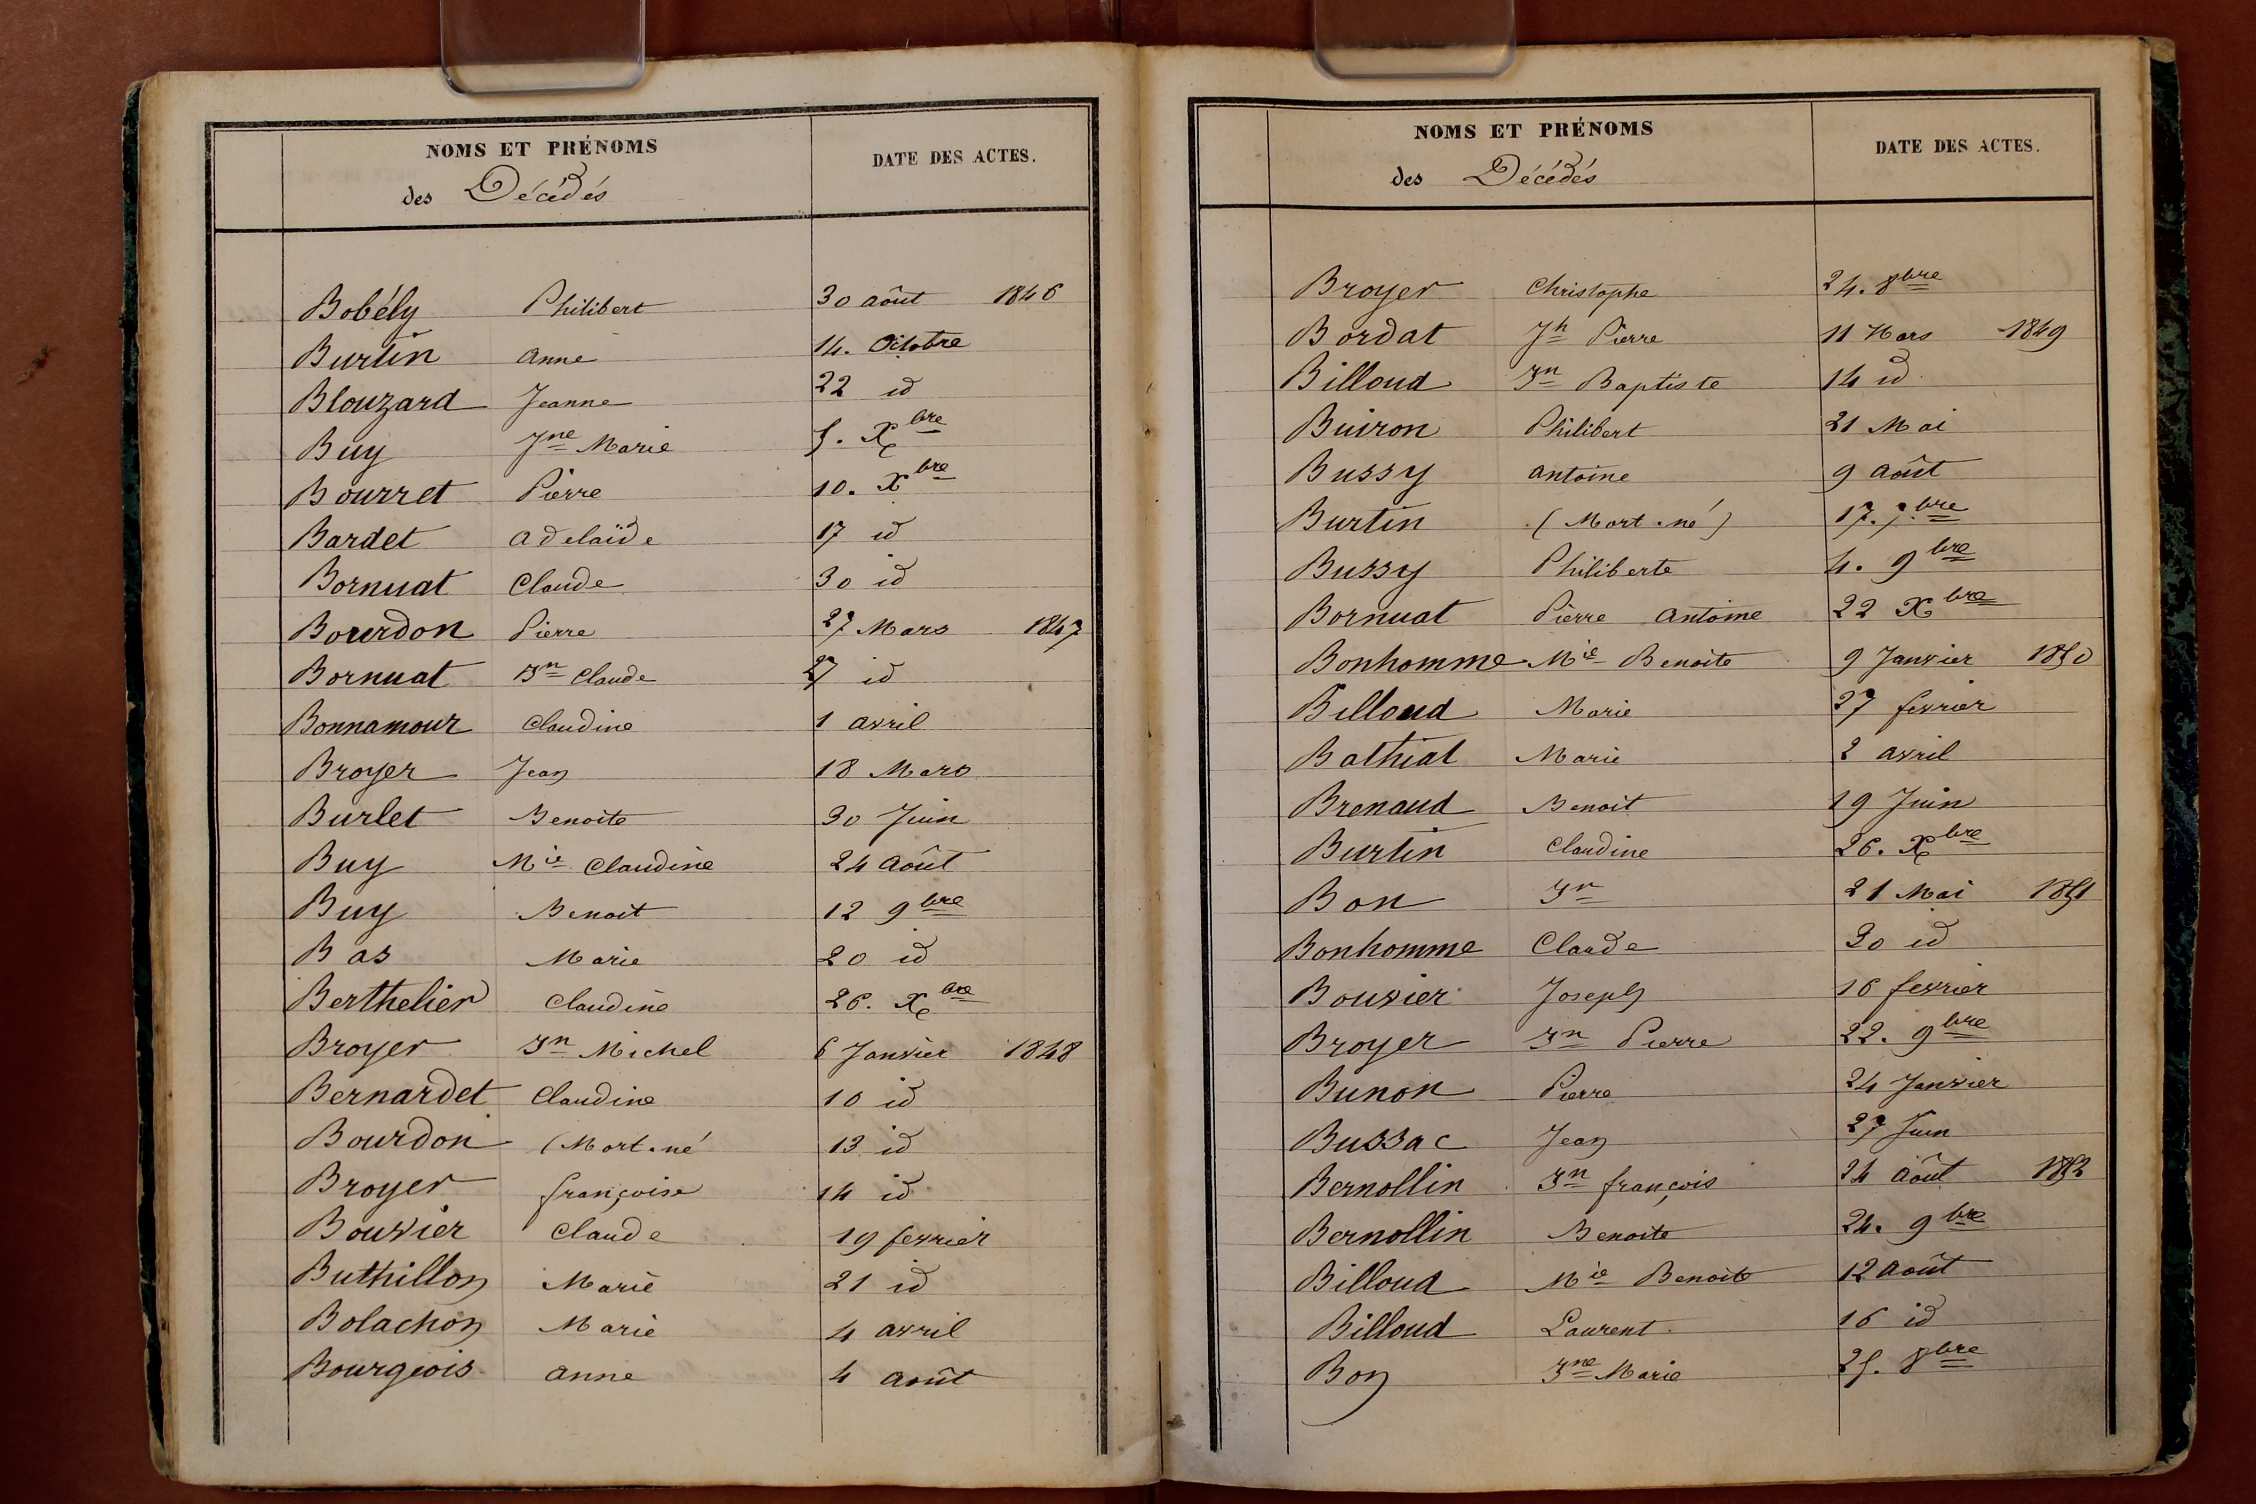 NOMS ET PRÉNOMS DATE DES ACTES.
des Décédés
Bobély Philibert 30 août 1846
Burtin anne 14. Octobre
Blouzard Jeanne 22 id
Buy Jne Marie 5. Xbre
Bourret Pierre 10. Xbre
Bardet adelaïde 17 id
Bornuat Claude 30 id
Bourdon Pierre 27 Mars 1847
Bornuat Jn Claude 27 id
Bonnamour Claudine 1 avril
Broyer Jean 18 Mars
Burlet Benoite 30 Juin
Buy Mie Claudine 24 août
Buy Benoit 12 9bre
Bas Marie 20 id
Berthelier Claudine 26. Xbre
Broyer Jn Michel 6 Janvier 1848
Bernardet Claudine 10 id
Bourdon (Mort-né 13 id
Broyer françoise 14 id
Bouvier Claude 19 fevrier
Buthillon Marie 21 id
Bolachon Marie 4 avril
Bourgeois anne 4 août
NOMS ET PRÉNOMS DATE DES ACTES.
des Décédés
Broyer Christophe 24. 8bre
Bordat Jh Pierre 11 Mars 1849
Billoud Jn Baptiste 14 id
Buiron Philibert 21 Mai
Bussy antoine 9 août
Burtin (Mort-né) 17. 7bre
Bussy Philiberte 4. 9bre
Bornuat Pierre antoine 22 Xbre
Bonhomme Mie Benoite 9 Janvier 1850
Billoud Marie 27 fevrier
Bathiat Marie 2 avril
Brenaud Benoit 19 Juin
Burtin Claudine 26. Xbre
Bon Jn 21 Mai 1851
Bonhomme Claude 30 id
Bouvier Joseph 16 fevrier
Broyer Jn Pierre 22. 9bre
Bunon Pierre 24 Janvier
Bussac Jean 27 Juin
Bernollin Jn françois 24 août 1852
Bernollin Benoite 24. 9bre
Billoud Mie Benoite 12 août
Billoud Laurent 16 id
Bon Jne Marie 25. 8bre